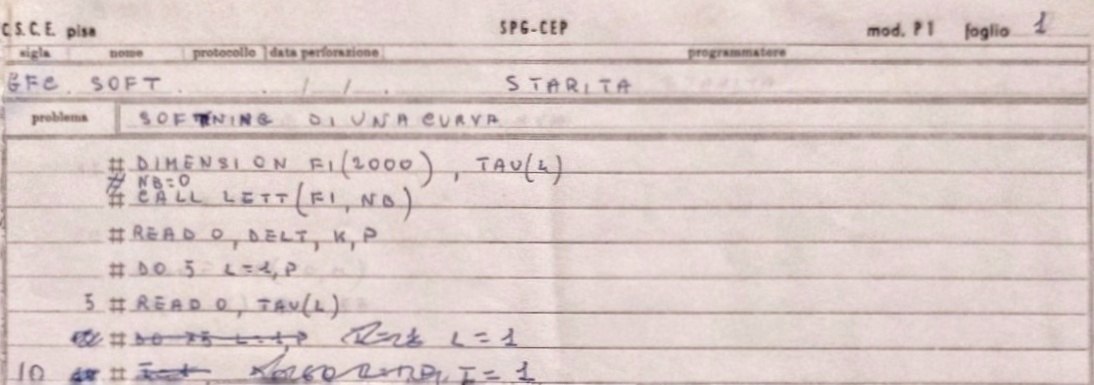 C.S.C.E. pisa SPG-CEP mod. P1 foglio 1
sigla nome protocollo data perforazione programmatore
GFC SOFT . / / . STARITA
problema SOFTNING DI UNA CURVA
# DIMENSION FI(2000), TAU(L)
# NB=0
# CALL LETT(FI, NB)
# READ 0, DELT, K, P
# DO 5 L=1,P
5 # READ 0, TAU(L)
# L=1
10 # I=1